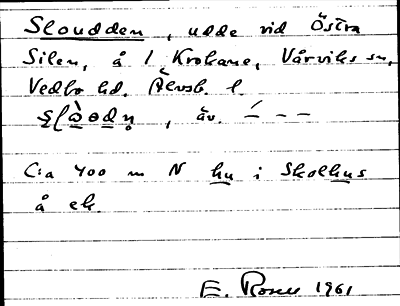 Sloudden, udde vid Östra
Silen, å / Krokane, Vårviks sn,
Vedbo hd. Älvsb. l.
, äv. ´ – – –
C:a 400 m N hu i Skolhus
å ek.
E. Rosen 1961